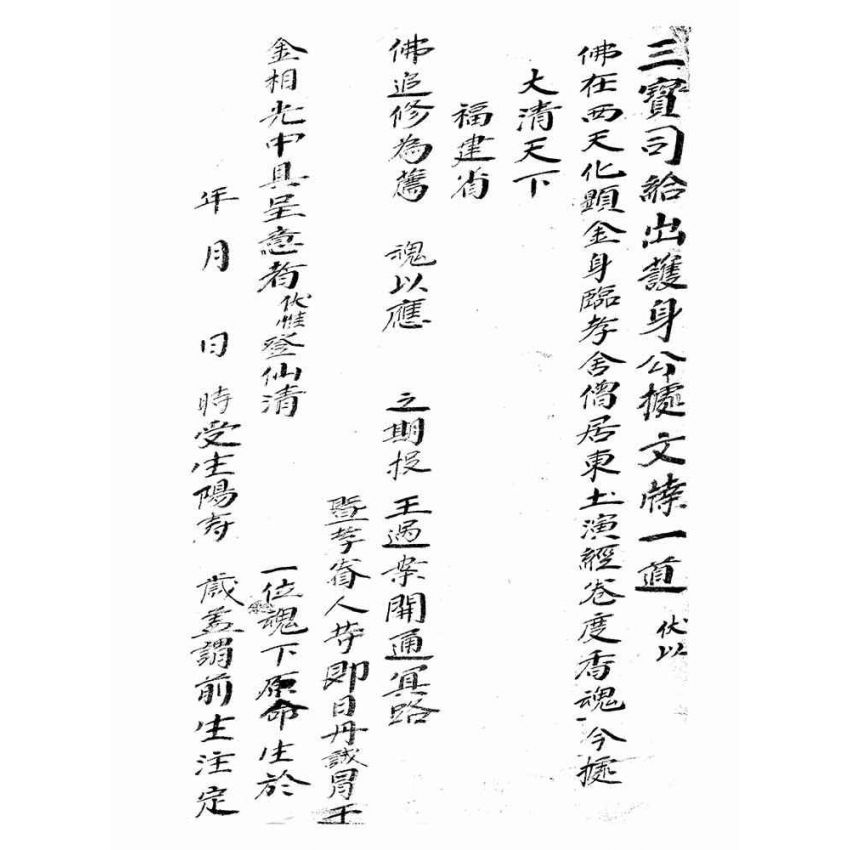 三寳司給出護身公據文牒一道 伏以
佛在西天化顕金身臨孝舍僧居東土演經卷度香魂今據
大清天下
福建省
佛追修為薦 魂以應 之期投王過案開通冥路
暨孝眷人等即日丹誠冒王
金相光中具呈意者伏惟登仙清 一位魂下原命生於
年 月 日 時受生陽寿 歳盖謂前生注定